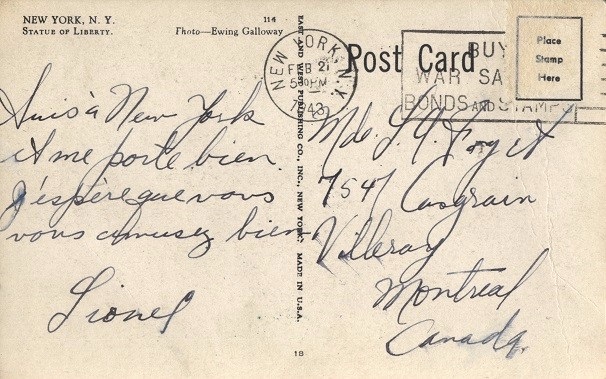 NEW YORK, N. Y.
STATUE OF LIBERTY.
114
Photo—Ewing Galloway
NEW YORK, N.Y.
FEB 21
5 30 PM
1943
Post Card
BUY
WAR SA
BONDS AND STAMPS
Place
Stamp
Here
EAST AND WEST PUBLISHING CO., INC., NEW YORK. MADE IN U.S.A.
Suis à New York
et me porte bien.
J'espère que vous
vous amusez bien
Lionel
Mde.
7547 Casgrain
Villeray
Montreal
Canada.
18